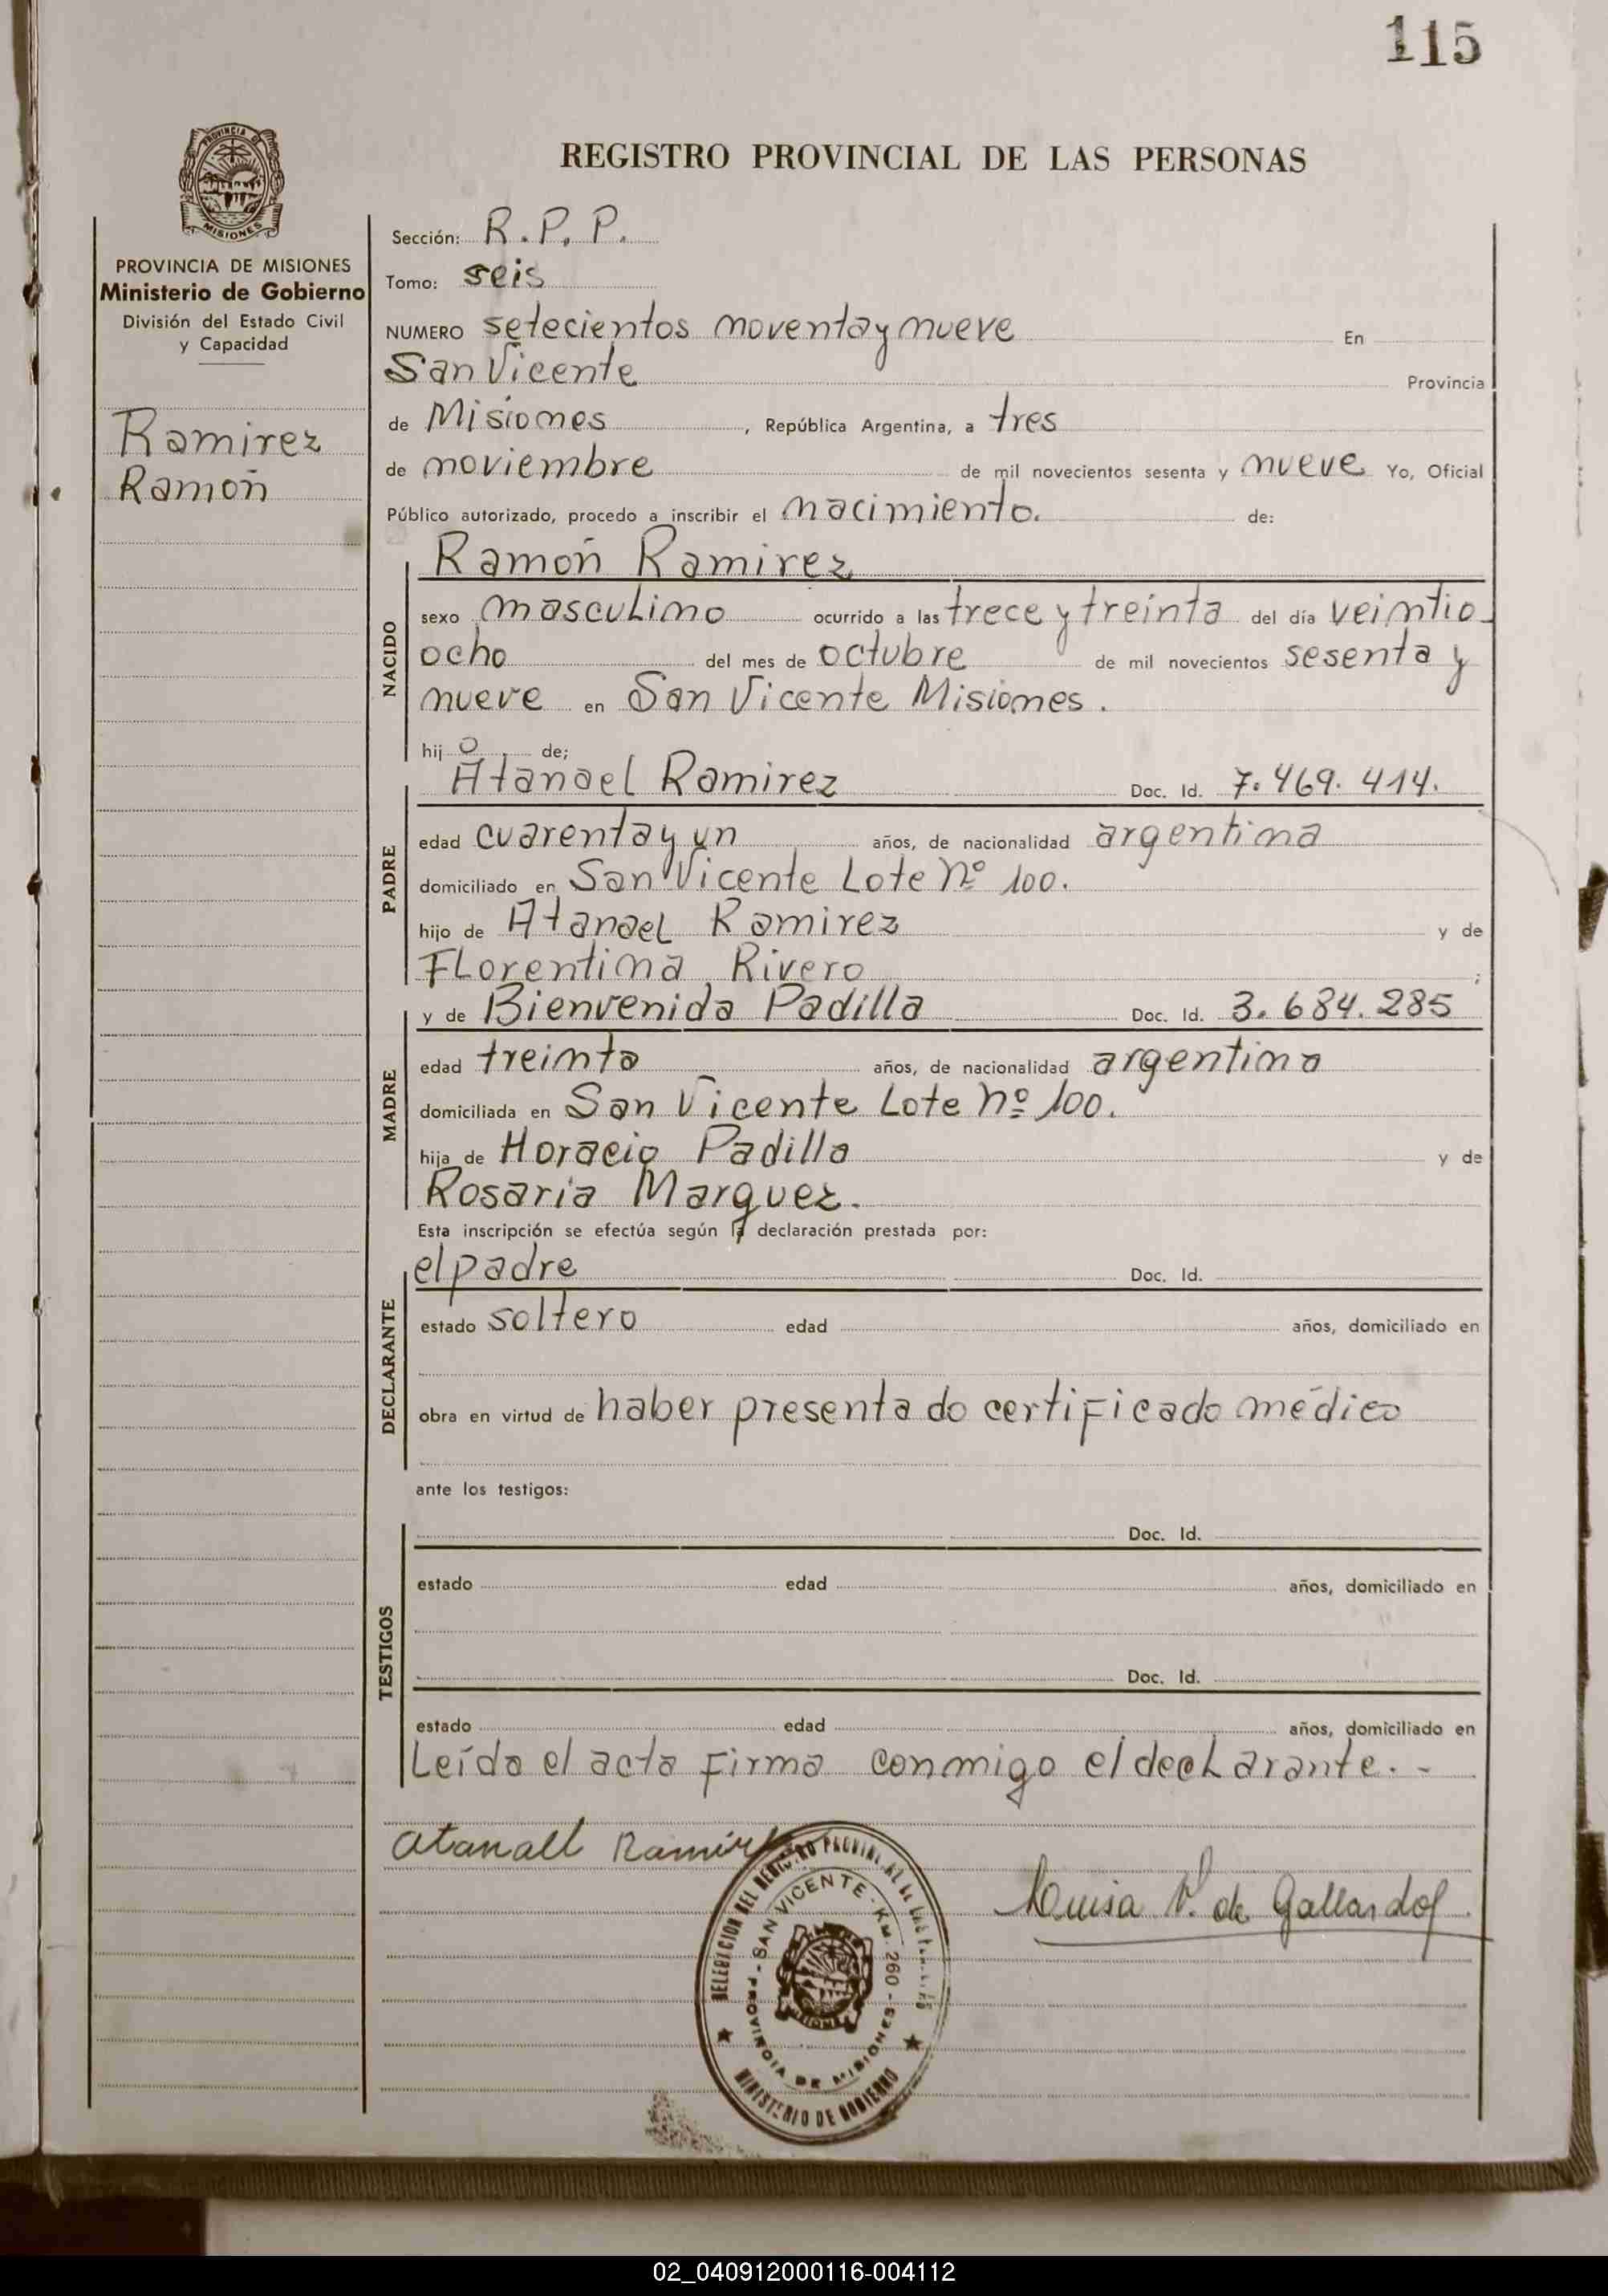 115
REGISTRO PROVINCIAL DE LAS PERSONAS
PROVINCIA DE MISIONES
Ministerio de Gobierno
División del Estado Civil
y Capacidad
Ramirez
Ramón
Sección: R.P.P.
Tomo: seis
NUMERO setecientos noventa y nueve En
San Vicente Provincia
de Misiones, República Argentina, a tres
de noviembre de mil novecientos sesenta y nueve Yo, Oficial
Público autorizado, procedo a inscribir el nacimiento. de:
NACIDO
Ramón Ramirez
sexo masculino ocurrido a las trece y treinta del día veintio
ocho del mes de octubre de mil novecientos sesenta y
nueve en San Vicente Misiones.
hijo de;
PADRE
Atanael Ramirez Doc. Id. 7.469.414.
edad cuarenta y un años, de nacionalidad argentina
domiciliado en San Vicente Lote Nº 100.
hijo de Atanael Ramirez y de
Florentina Rivero ;
MADRE
y de Bienvenida Padilla Doc. Id. 3.684.285
edad treinta años, de nacionalidad argentina
domiciliada en San Vicente Lote nº 100.
hija de Horacio Padilla y de
Rosaria Marquez.
Esta inscripción se efectúa según la declaración prestada por:
DECLARANTE
el padre Doc. Id.
estado soltero edad años, domiciliado en
obra en virtud de haber presentado certificado médico
ante los testigos:
TESTIGOS
Doc. Id.
estado edad años, domiciliado en
Doc. Id.
estado edad años, domiciliado en
Leída el acta firma conmigo el declarante. -
Atanall Ramirez
Luisa V. de Gallardo
DELEGACION DEL REGISTRO PROVINCIAL DE LAS PERSONAS
SAN VICENTE - KM. 260 - PROVINCIA DE MISIONES -
MINISTERIO DE GOBIERNO
02_040912000116-004112